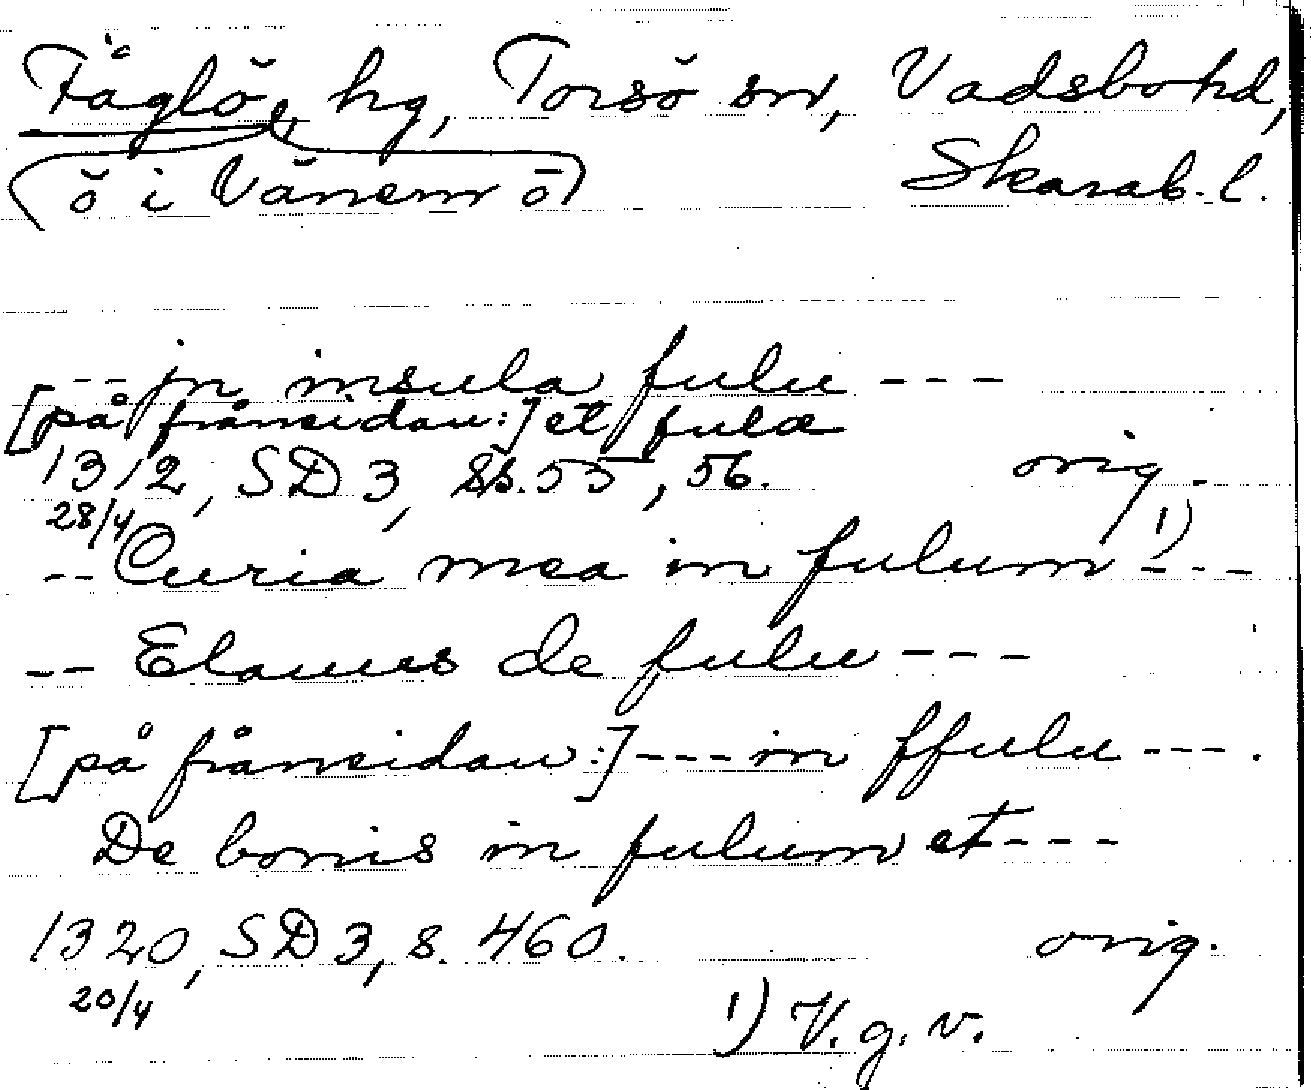 Fåglö, hg, Torsö sn, Vadsbo hd,
(ö i Vänern ö) Skarab. l.
-- jn insula fulu ---
[på frånsidan:] et fulæ
1312, SD 3, ss. 55, 56. orig.
28/4
-- Curia mea in fulum 1) ---
-- Elaues de fulu ---
[på frånsidan:] --- in ffulu ---.
De bonis in fulum et ---
1320, SD 3, s. 460. orig.
20/4
1) V. g. v.